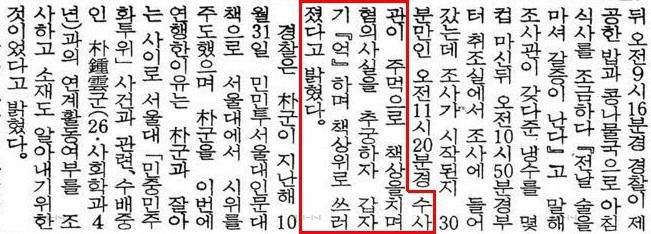 뒤 오전9시16분경 경찰이 제
공한 밥과 콩나물국으로 아침
식사를 조금하다 『전날 술을
마셔 갈증이 난다』고 말해
조사관이 갖다준 냉수를 몇
컵 마신뒤 오전10시50분경부
터 취조실에서 조사에 들어
갔는데 조사가 시작된지 30
분만인 오전11시20분경 수사
관이 주먹으로 책상을치며
혐의사실을 추궁하자 갑자
기 『억』하며 책상위로 쓰러
졌다고 밝혔다。
경찰은 朴군이 지난해 10
월31일 민민투서울대인문대
책으로 서울대에서 시위를
주도했으며 朴군을 이번에
연행한이유는 朴군과 잘아
는 사이로 서울대 「민중민주
화투위」사건과 관련、수배중
인 朴鍾雲군(26·사회학과4
년)과의 연계활동여부를 조
사하고 소재도 알아내기위한
것이었다고 밝혔다。